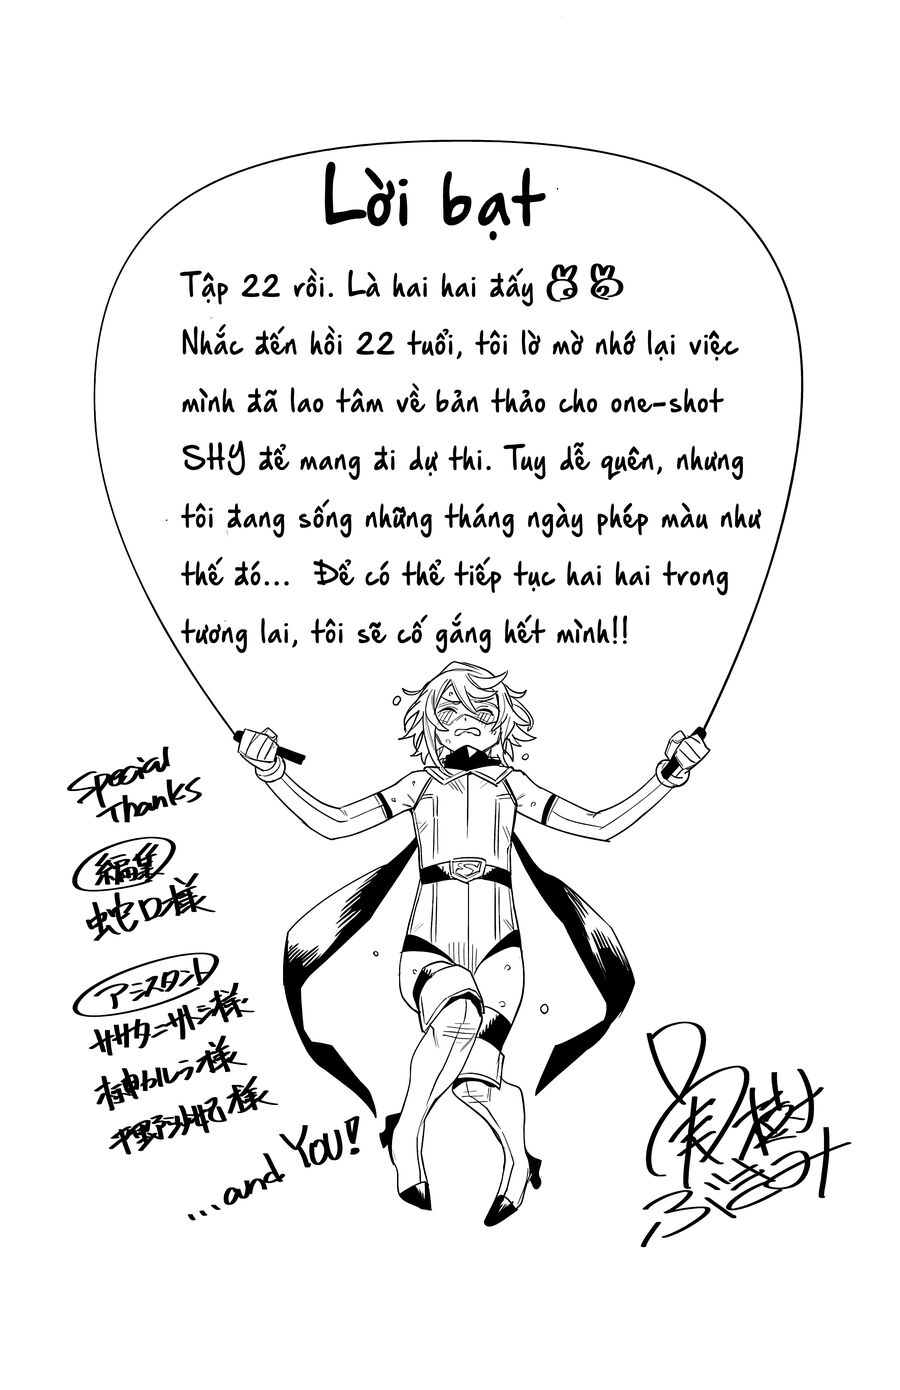 Lời bạt
Tập 22 rồi. Là hai hai đấy
Nhắc đến hồi 22 tuổi, tôi lờ mờ nhớ lại việc
mình đã lao tâm về bản thảo cho one-shot
SHY để mang đi dự thi. Tuy dễ quên, nhưng
tôi đang sống những tháng ngày phép màu như
thế đó... Để có thể tiếp tục hai hai trong
tương lai, tôi sẽ cố gắng hết mình!!
Special
Thanks
編集
蛇口様
アシスタント
ササタニサトシ様
様
平野 様
...and YOU!
実樹
ぶきみ
S